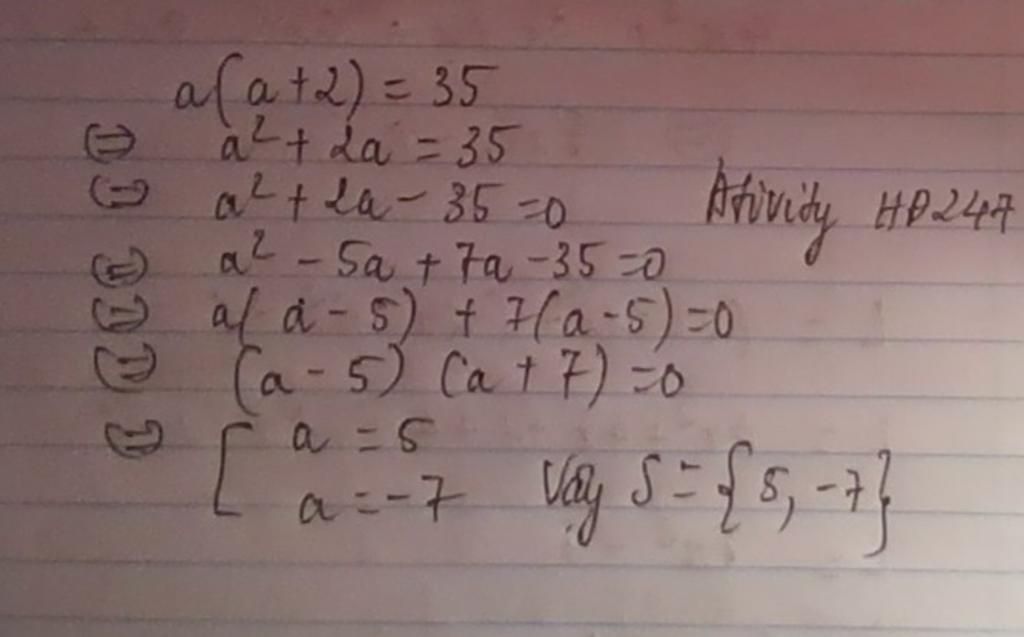 a(a+2) = 35
⇔ a² + 2a = 35
⇔ a² + 2a - 35 = 0
Ativity HD247
⇔ a² - 5a + 7a - 35 = 0
⇔ a(a - 5) + 7(a - 5) = 0
⇔ (a - 5) (a + 7) = 0
⇔ [ a = 5
a = -7 Vậy S = {5, -7}